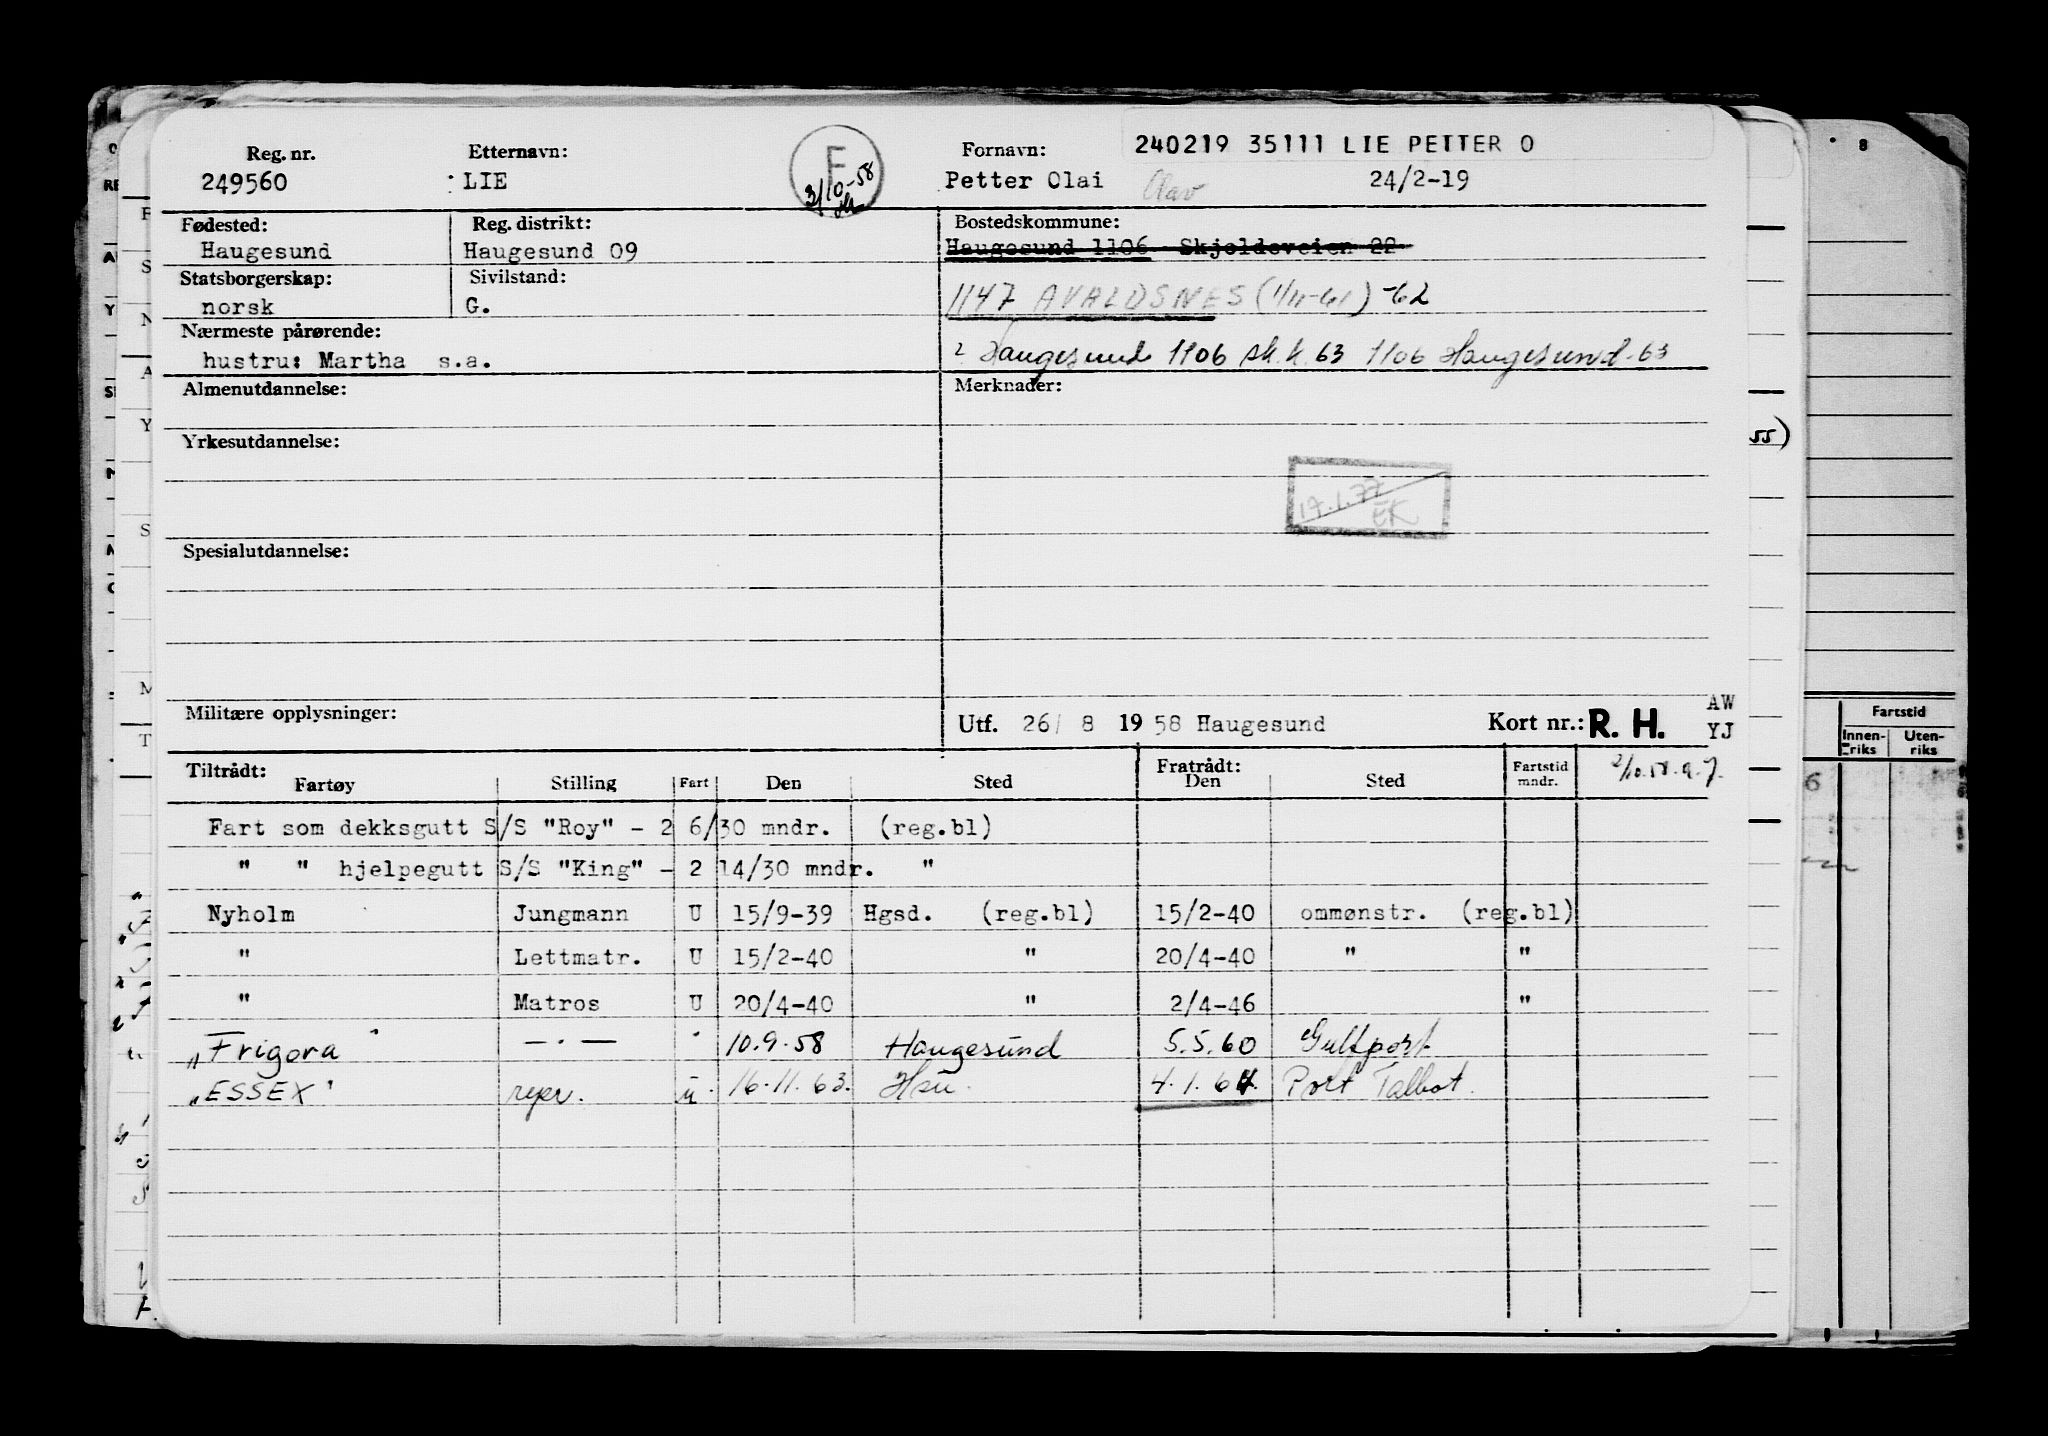 240219 35111 LIE PETTER O
Reg. nr. Etternavn: F Fornavn:
249560 LIE 3/10-58 Petter Olai Olav 24/2-19
Fødested: Reg. distrikt: Bostedskommune:
Haugesund Haugesund 09 Haugesund 1106 Skjoldaveien 22
Statsborgerskap: Sivilstand:
norsk G. 1147 AVALDSNES (1/11-61) -62
Nærmeste pårørende:
hustru: Martha s.a. 2 Haugesund 1106 sk.k. 63 1106 Haugesund-63
Almenutdannelse: Merknader:
Yrkesutdannelse:
17.1.77
EK
Spesialutdannelse:
Militære opplysninger: Utf. 26/ 8 1958 Haugesund Kort nr.: R. H. AW
YJ
Tiltrådt: Fratrådt:
Fartøy Stilling Fart Den Sted Den Sted Fartstid mndr.
Fart som dekksgutt S/S "Roy" - 2 6/30 mndr. (reg.bl)
" " hjelpegutt S/S "King" - 2 14/30 mndr. "
Nyholm Jungmann U 15/9-39 Hgsd. (reg.bl) 15/2-40 ommønstr. (reg.bl)
" Lettmatr. U 15/2-40 " 20/4-40 " "
" Matros U 20/4-40 " 2/4-46 "
„Frigora" —"— " 10.9.58 Haugesund 5.5.60 Gulfport
„ESSEX" reper. u. 16.11.63. Hau. 4.1.64. Port Talbot.
55)
8
Fartstid
Innenriks Utenriks
6